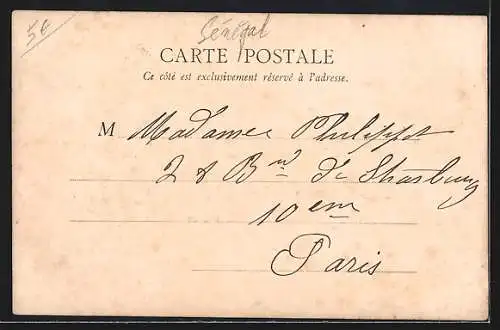 56
Sénégal
CARTE POSTALE
Ce côté est exclusivement réservé à l'adresse.
M Madame Philippot
28 Bd de Strasbourg
10 em
Paris